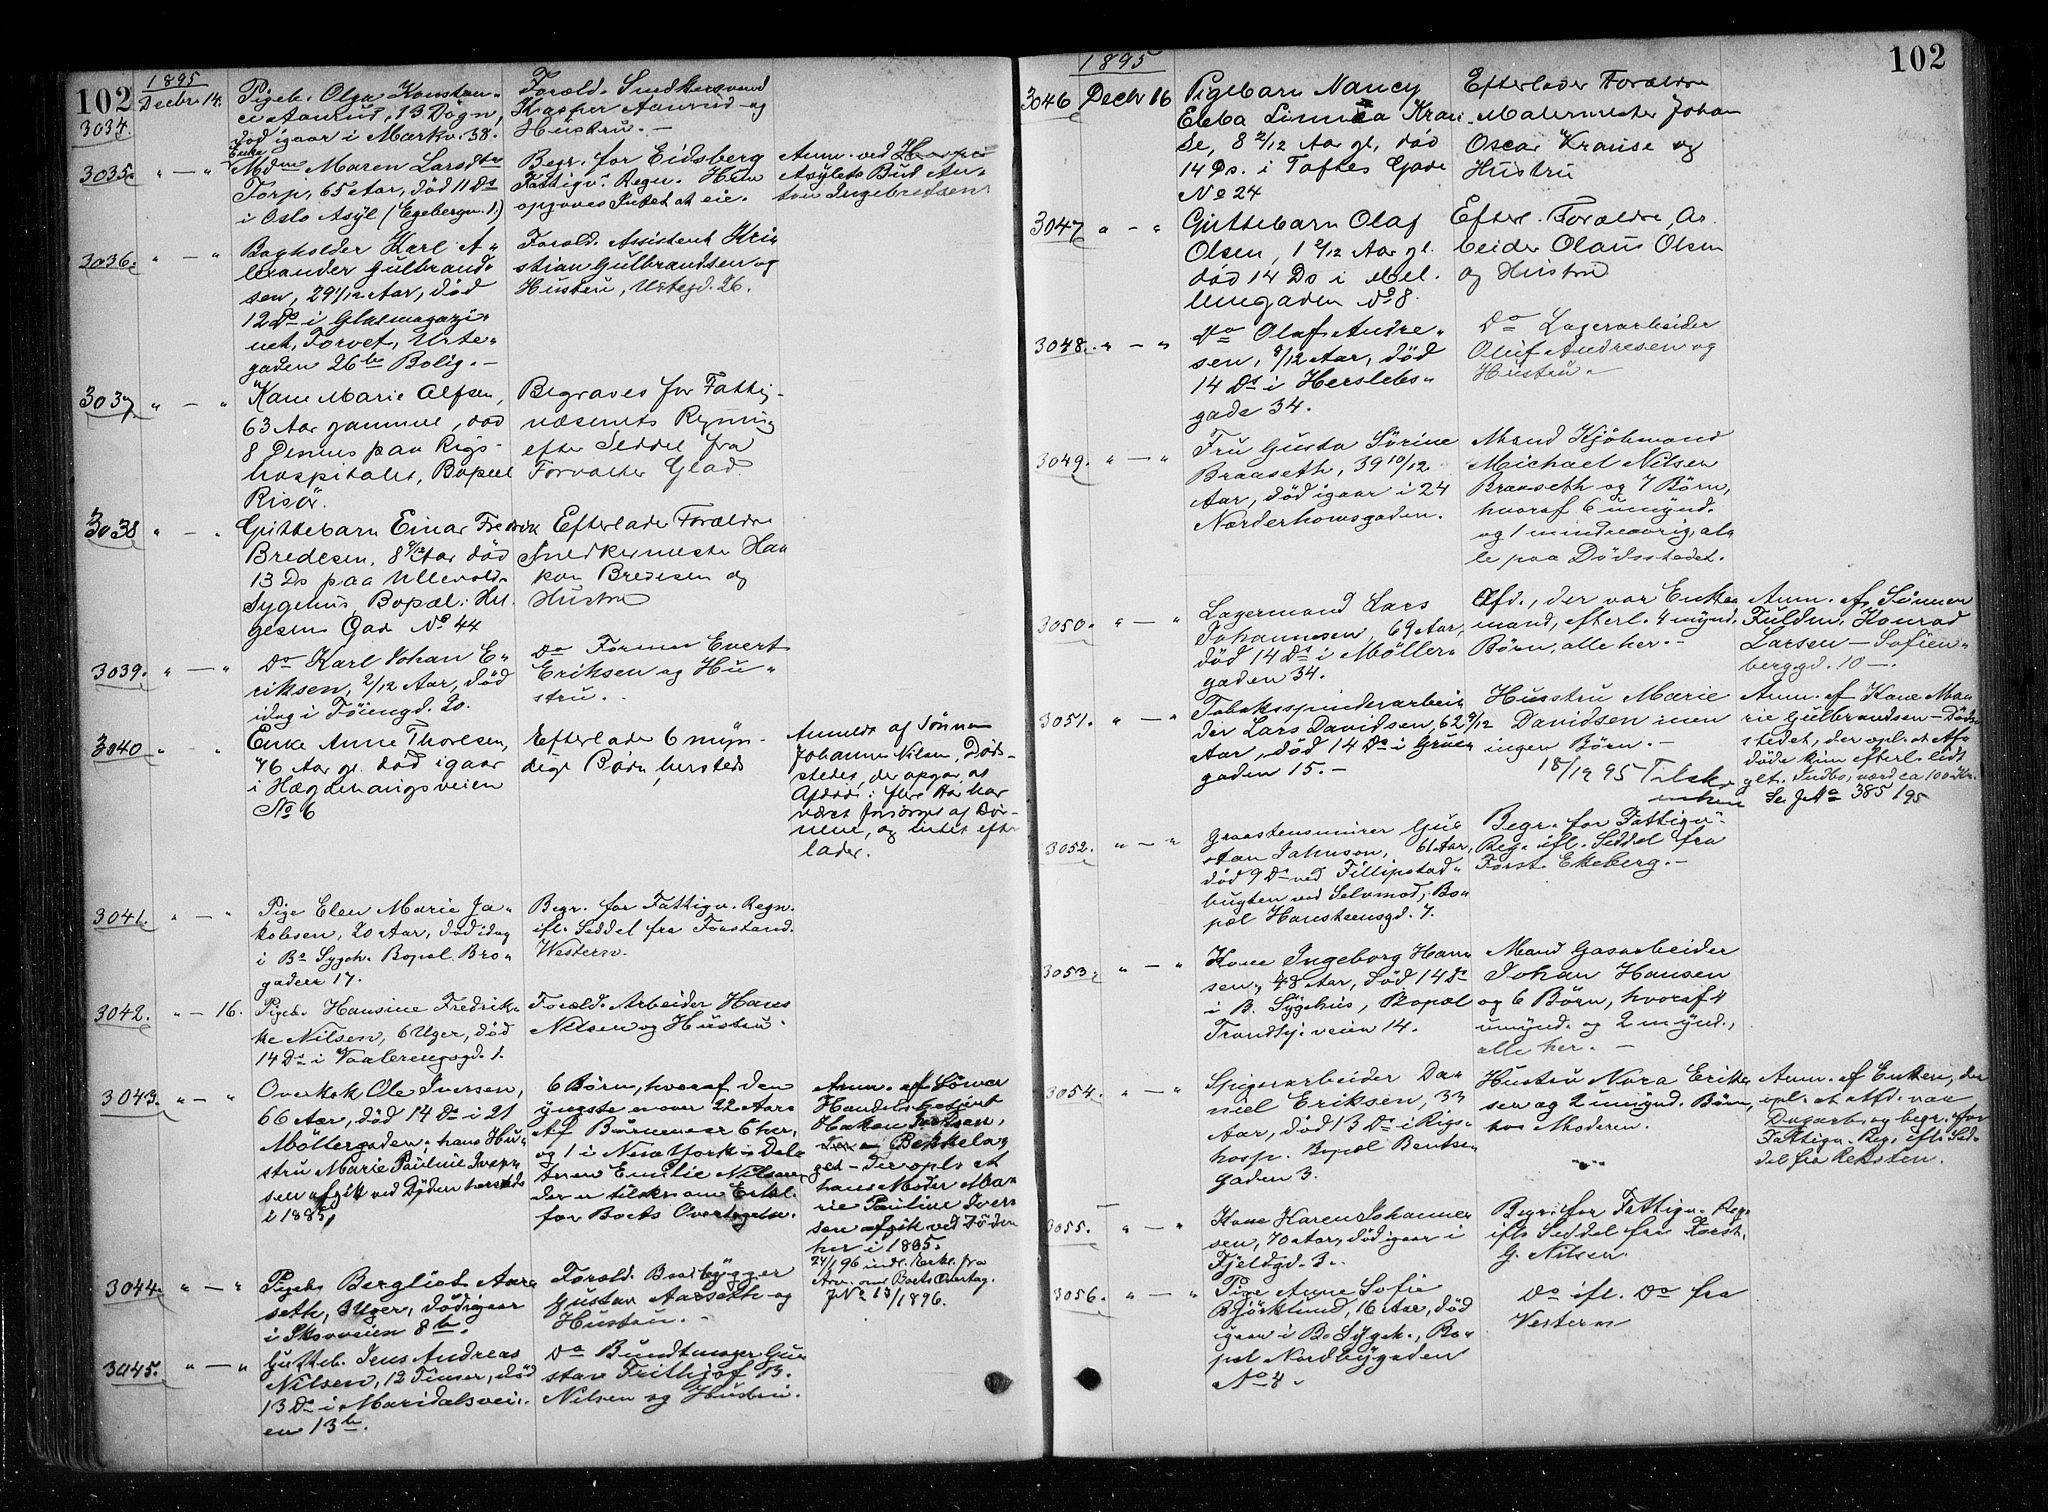 102
1895
3034. Decbr. 14.
Pigeb. Olga Konstan-
ce Aanrud, 13 Døgn,
død igaar i Markv. 38.
Foræld. Snedkersvend
Kasper Aanrud og
Hustru. —
3035. " — "
Enke
Mdm Maren Larsdtr
Torp, 65 Aar, død 11 Ds
i Oslo Asyl (Egebergv. 1.)
Begr. for Eidsberg
Fattigv. Regn. Hun
opgaves Intet at eie.
Anm. ved
Asylets Bud An-
ton Ingebretsen
3036. " — "
Bogholder Karl A-
lexander Gulbrand-
sen, 29 1/12 Aar, død
12 Ds i Glasmagazi-
net, Torvet, Urte-
gaden 26 be Bolig. —
Foræld. Assistent Kri-
stian Gulbrandsen og
Hustru, Urtegd. 26.
3037. " — "
Kone Marie Olfsen,
63 Aar gammel, død
8 Dennes paa Rigs-
hospitalet, Bopæl
Risör.
Begraves for Fattig-
væsenets Regning
efter Seddel fra
Forvalter Glad
3038 " — "
Guttebarn Einar Fredrik
Bredesen, 8 9/12 Aar død
13 Ds paa Ullevold-
Sygehus, Bopæl: Hel-
gesens Gad No 44
Efterlader Forældre
Snedkermester Haa-
kon Bredesen og
Hustru
3039. " — "
Do Karl Johan E-
riksen, 2/12 Aar, død
idag i Töiengd. 20.
Do Former Evert
Eriksen og Hu-
stru. —
3040 " "
Enke Anne Thorlsen,
76 Aar gl. død igaar
i Hægdehaugsveien
No 6
Efterlader 6 myn-
dige Børn, hersteds
Anmeldt af Sønnen
Johannes Nilsen, Døds-
stedet, der opgav, at
Afdøde i flere Aar har
været forsørget af Bør-
nene, og intet efter-
lader.
3041. " — "
Pige Elen Marie Ja-
kobsen, 20 Aar, død idag
i Bs Sygeh. Bopæl Bro-
gaden 17.
Begr. for Fattigv. Regn.
ifl. Seddel fra Forstand.
Western.
3042. " — 16.
Pigeb. Hansine Fredrik-
ke Nilsen, 6 Uger, død
14 Ds i Vaalerengsgd. 1.
Foræld. Arbeider Hans
Nilsen og Hustru.
3043. " — "
Overkok Ole Iversen,
66 Aar, død 14 Ds i 21
Möllergaden; hans Hu-
stru Marie Pauline Iver-
sen afgik ved Döden hersteds
i 1885,
6 Børn, hvoraf den
yngste er over 22 Aar.
Af Børnene er 5 her,
og 1 i New York — Dat-
teren Emilie Nilsen
der er tilskr. om Erkl.
for Boets Overtagelse.
Anm. af Sönnen
Handelsbetjent
Hakon Iversen,
Bekkelag
get — der opl. at
hans Moder Ma-
rie Pauline Iver-
sen afgik ved Döden
her i 1885.
24/1 96 indk. Erkl. fra
Arv. om Boets Overtag.
J No 13/1896.
3044. " — "
Pigeb. Bergliot Aar-
seth, 3 Uger, død igaar
i Skovveien 8 b.
Foræld. Baatbygger
Gustav Aarseth og
Hustru. —
3045. " — "
Gutteb. Jens Andreas
Nilsen, 12 Timer, død
13 Ds i Maridalsvei-
en 13 b.
Do Bundtmager Gu-
stav Frithjof B.
Nilsen og Hustru.
1895
102
3046 Decbr 16
Pigebarn Nancy
Ebba Linnea Krau-
se, 8 2/12 Aar gl., død
14 Ds. i Toftes Gade
No 24
Efterlader Forældre
Malermester Johan
Oscar Krause og
Hustru
3047 " — "
Guttebarn Olaf
Olsen, 1 2/12 Aar gl.
død 14 Ds i Mel-
lemgaden No 8.
Efterl. Forældre, Ar-
beider Olaus Olsen
og Hustru
3048. " — "
Do Olaf Andre-
sen, 8/12 Aar, død
14 Ds i Herslebs-
gade 34.
Do Lagerarbeider
Oluf Andresen og
Hustru. —
3049. " — "
Fru Gusta Sörine
Braaseth, 39 10/12
Aar, død igaar i 24
Norderhovsgaden.
Mand Kjöbmand
Michael Nilsen
Braaseth og 7 Börn,
hvoraf 6 umynd.
og 1 mindreaarig, al-
le paa Dödsstedet.
3050. " — "
Lagermand Lars
Johannesen, 69 Aar,
död 14 Ds i Möller-
gaden 34.
Afd., der var Enke-
mand, efterl. 4 mynd.
Börn, alle her. —
Anm. af Sönnen
Fuldm. Konrad
Larsen — Sofien-
berggd. 10 —.
3051. " — "
Tobaksspinderarbei-
der Lars Davidsen, 62 9/12
Aar, død 14 Ds i Grue-
gaden 15. —
Hustru Marie
Davidsen men
ingen Börn. —
18/12 95 Tilsk.
enken
Anm. af Kone Ma-
rie Gulbrandsen — Döds-
stedet, der opl. at Afd
döde kun efterl. lidt
glt. Indbo, værd ca 100 Kr.
Se J No 385/95
3052. " — "
Graastensmurer Gus-
tav Johnson, 61 Aar,
död 9 Ds ved Fillipstad-
bugten ved Selvmord, Bo-
pæl Hansteensgd. 7.
Begr. for Fattigv.
Reg. ifl. Seddel fra
Forst. Ekeberg. —
3053. " — "
Kone Ingeborg Han-
sen, 48 Aar, død 14 Ds
i B. Sygehus, Bopæl
Trondhj. veien 14.
Mand Gasarbeider
Johan Hansen
og 6 Börn, hvoraf 4
umynd. og 2 mynd.,
alle her. —
3054. " — "
Spigerarbeider Da-
niel Eriksen, 33
Aar, död 13 Ds i Rigs-
hosp. Bopæl Bentse-
gaden 3.
Hustru Nora Erik-
sen og 2 umynd. Börn,
hos Moderen.
Anm. af Enken, der
opl. at Afd. var
Dagarb. og begr. for
Fattigv. Reg. ifl. Sed-
del fra Reksten.
3055. " — "
Kone Karen Johanne-
sen, 70 Aar, död igaar i
Fjeldgd. 3. —
Begr. for Fattigv. Reg.
ifl. Seddel fra Forst.
G. Nilsen.
3056. " — "
Pige Anne Sofie
Björklund, 16 Aar, död
igaar i Bs Sygeh., Bo-
pæl Nordbygaden
No 4.
Do ifl. Do fra
Western